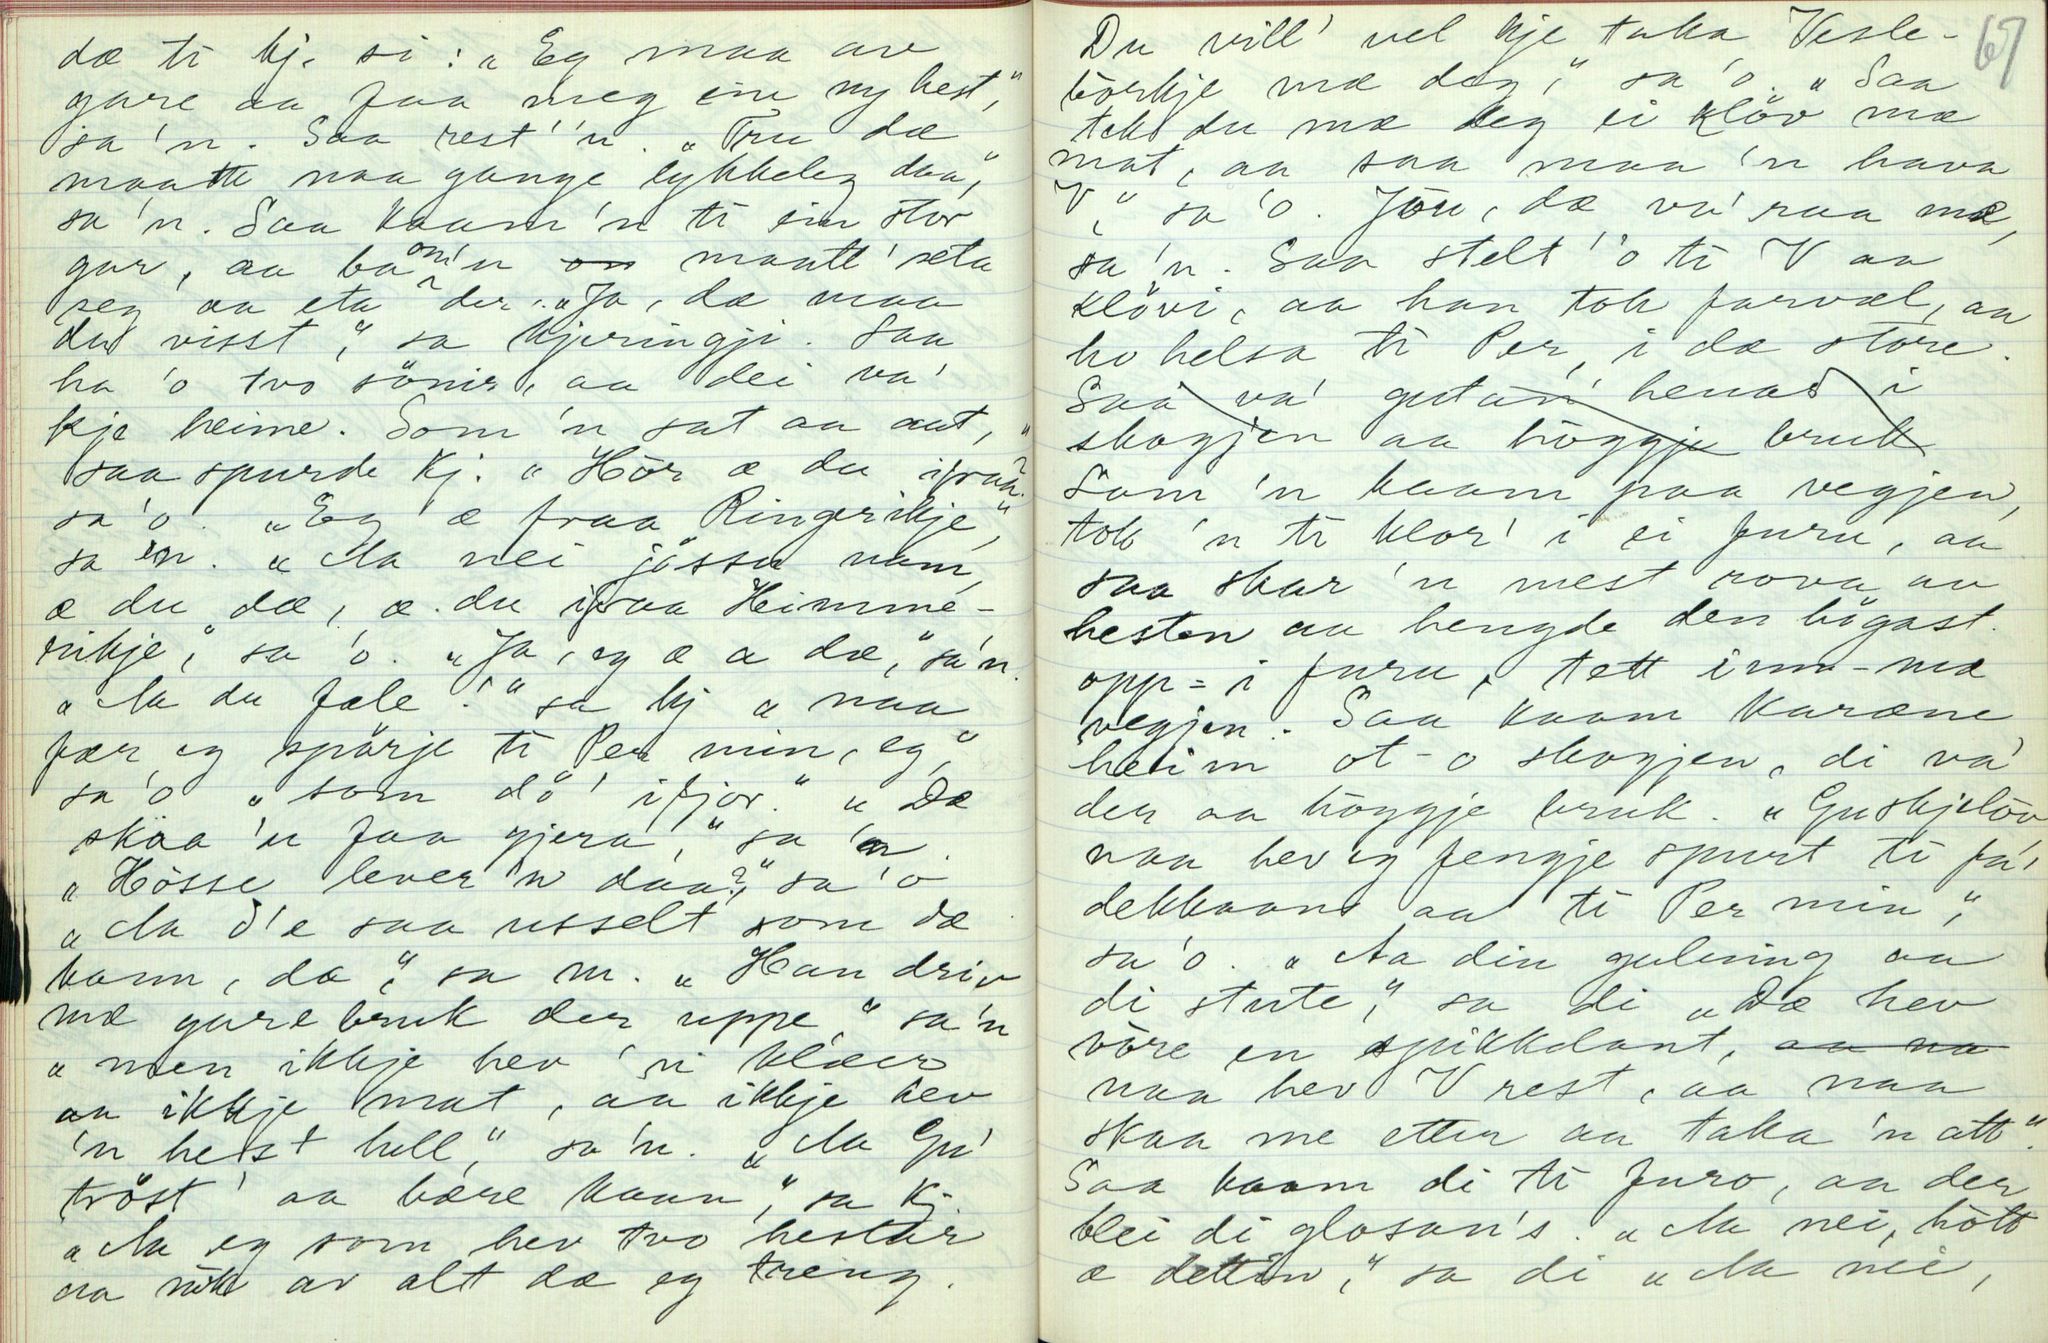 dæ ti kj. si: „Eg maa av
gare aa faa meg ein ny hest,"
sa'n. Saa rest''n. „Tru dæ
maatte naa gange lykkeleg daa,"
sa'n. Saa kaam'n ti ein stor
gar, aa ba om'n maatt' seta
seg aa eta der. „Ja, dæ maa
du visst," sa kjeringji. Saa
ha'o tvo sönir, aa dei va'
kje heime. Som'n sat aa aat,
saa spurde kj. „Hör æ du ifraa?"
sa'o. „Eg æ fraa Ringerikje,"
sa'n. „Aa nei jössu namn,
æ du dæ, æ du ifraa Himme-
rikje," sa'o. „Ja, eg æ a dæ," sa'n.
„Aa du fæle!" sa kj „naa
fær eg spörje ti Per min, eg,"
sa'o „som dö' ifjor." „Dæ
skaa'u faa gjera," sa'n.
„Hösse lever'n daa?," sa'o
„Aa d'e saa usselt som dæ
kann, dæ," sa m. „Han driv
mæ gare bruk der uppe," sa'n
„men ikkje hev'n klæer
aa ikkje mat, aa ikkje hev
'n hest hell," sa'n. „Aa Gu'
tröst' aa bære kaan," sa kj.
„Aa eg som hev tvo hestar
aa nok av alt dæ eg treng.
67
Du vill' vel kje taka Vesle-
börkje mæ deg," sa'o. „Saa
tek du mæ deg ei klöv mæ
mat, aa saa maa'n hava
V," sa'o. Jöu, dæ va' raa mæ,
sa'n. Saa stelt''o ti V aa
klövi, aa han tok farvæl, aa
ho helsa ti Per, i dæ störe.
Saa va' gutan' henas i
skogjen aa höggje bruk
Som'n kaam paa vegjen,
tok'n ti klor' i ei furu, aa
saa skar'n mest rova av
hesten aa hengde den högast
opp=i furu, tett inn-mæ
vegjen. Saa kaam karæne
heim ot-o skogjen, di va'
der aa höggje bruk. „Guskjelöv
naa hev eg fengje spurt ti fa'
dekkaans aa ti Per min,"
sa'o. „Aa din gulning aa
di stute," sa di „Dæ hev
vöre en spikkelant, aa na
naa hev V rest, aa naa
skaa me etter aa taka'n att".
Saa kaam di ti furo, aa der
blei di glosan's. „Aa nei, hött
æ dettin," sa di „Aa nei,